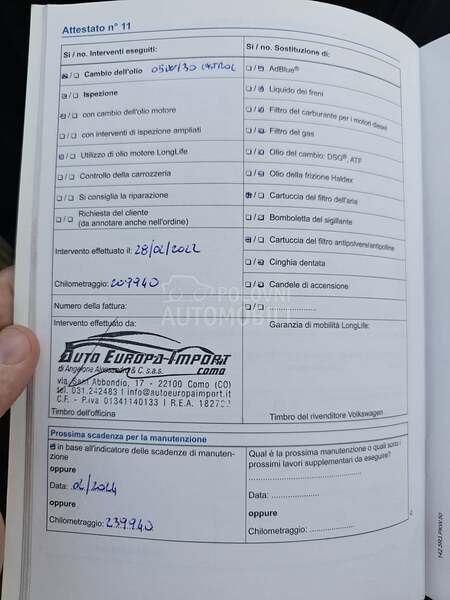 Attestato n° 11
Si / no. Interventi eseguiti:
☑ / ☐ Cambio dell'olio 05W/30 CASTROL
☑ / ☐ Ispezione
☑ / ☐ con cambio dell'olio motore
☐ / ☐ con interventi di ispezione ampliati
☑ / ☐ Utilizzo di olio motore LongLife
☐ / ☐ Controllo della carrozzeria
☐ / ☐ Si consiglia la riparazione
☐ / ☐ Richiesta del cliente
(da annotare anche nell'ordine)
Intervento effettuato il: 28/02/2022
Chilometraggio: 209940
Numero della fattura:
Intervento effettuato da:
AUTO EUROPA-IMPORT
COMO
di Angelona & C. s.a.s.
via Sant Abbondio, 17 - 22100 Como (CO)
tel. 031.242483 | info@autoeuropaimport.it
C.F. - P.iva 01341140133 | R.E.A.
Timbro dell'officina
Si / no. Sostituzione di:
☐ / ☑ AdBlue®
☐ / ☑ Liquido dei freni
☐ / ☑ Filtro del carburante per i motori diesel
☐ / ☑ Filtro del gas
☐ / ☑ Olio del cambio: DSG®, ATF
☐ / ☑ Olio della frizione Haldex
☑ / ☐ Cartuccia del filtro dell'aria
☐ / ☐ Bomboletta del sigillante
☑ / ☐ Cartuccia del filtro antipolvere/antipolline
☐ / ☑ Cinghia dentata
☐ / ☐ Candele di accensione
☐ / ☐ ....................
Garanzia di mobilità LongLife:
Timbro del rivenditore Volkswagen
POLOVNI
AUTOMOBILI
Prossima scadenza per la manutenzione
☑ in base all'indicatore delle scadenze di manuten-
zione
oppure
Data: 02/2024
oppure
Chilometraggio: 239.940
Qual è la prossima manutenzione o quali sono i
prossimi lavori supplementari da eseguire?
....................
Data: ....................
oppure
Chilometraggio: ....................
142.5R3.PKW.50